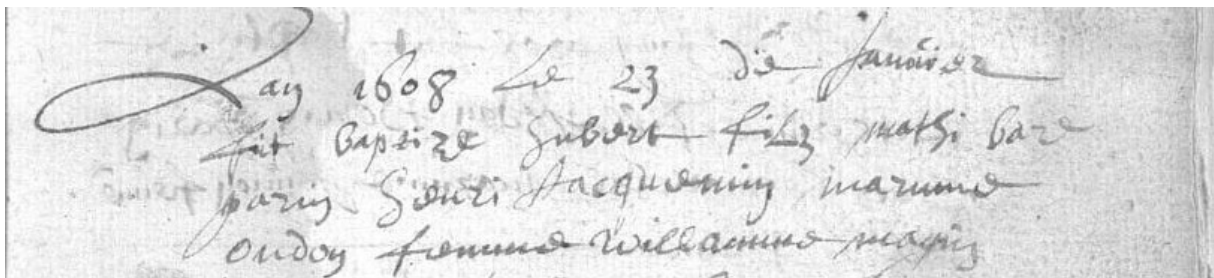 Lan 1608 Le 23 de Januier
fut baptize hubert filz mathi bare
parin henri Jacquemin marinne
oudon femme willamme magin